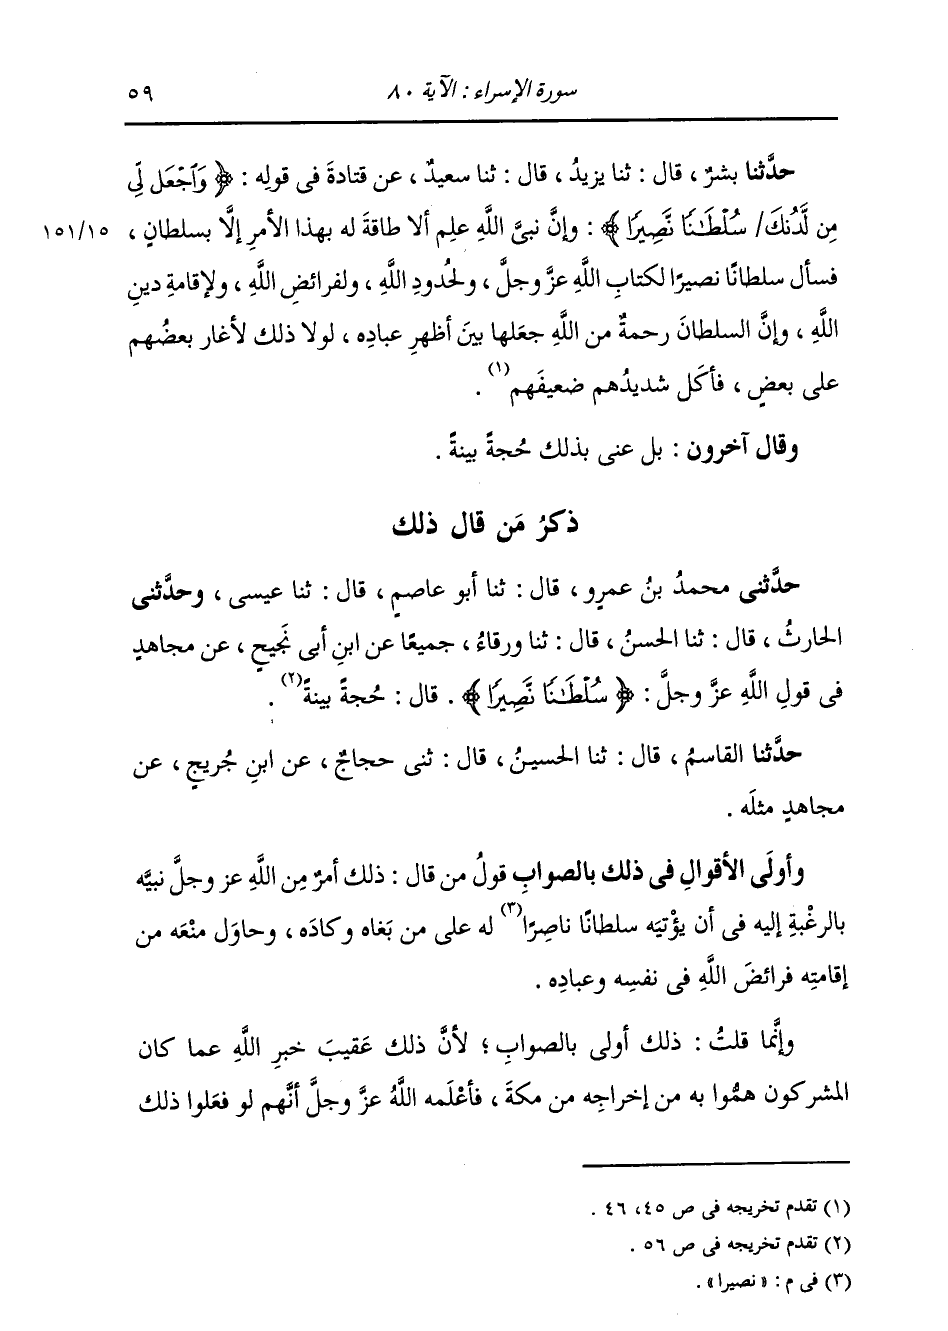 سورة الإسراء : الآية ٨٠
٥٩
حدَّثنا بشرٌ ، قال : ثنا يزيدُ ، قال : ثنا سعيدٌ ، عن قتادةَ فى قولِه : ﴿ وَٱجْعَل لِّى
مِن لَّدُنكَ/ سُلْطَـٰنًا نَّصِيرًا ﴾ : وإنَّ نبىَّ اللَّهِ علِم ألا طاقةَ له بهذا الأمرِ إلَّا بسلطانٍ ،
١٥١/١٥
فسأل سلطانًا نصيرًا لكتابِ اللَّهِ عزَّ وجلَّ ، ولحُدودِ اللَّهِ ، ولفرائضِ اللَّهِ ، ولإقامةِ دينِ
اللَّهِ ، وإنَّ السلطانَ رحمةٌ من اللَّهِ جعَلها بينَ أظهرِ عبادِه ، لولا ذلك لأغار بعضُهم
على بعضٍ ، فأكَل شديدُهم ضعيفَهم(١) .
وقال آخرون : بل عنى بذلك حُجةً بينةً .
ذكرُ مَن قال ذلك
حدَّثنى محمدُ بنُ عمرٍو ، قال : ثنا أبو عاصمٍ ، قال : ثنا عيسى ، وحدَّثنى
الحارثُ ، قال : ثنا الحسنُ ، قال : ثنا ورقاءُ ، جميعًا عن ابنِ أبى نَجيحٍ ، عن مجاهدٍ
فى قولِ اللَّهِ عزَّ وجلَّ : ﴿ سُلْطَـٰنًا نَّصِيرًا ﴾ . قال : حُجةً بينةً(٢) .
حدَّثنا القاسمُ ، قال : ثنا الحسينُ ، قال : ثنى حجاجٌ ، عن ابنِ جُريجٍ ، عن
مجاهدٍ مثلَه .
وأولَى الأقوالِ فى ذلك بالصوابِ قولُ من قال : ذلك أمرٌ مِن اللَّهِ عز وجلَّ نبيَّه
بالرغْبةِ إليه فى أن يؤْتيَه سلطانًا ناصِرًا(٣) له على من بَغاه وكادَه ، وحاوَل منْعَه من
إقامتِه فرائضَ اللَّهِ فى نفسِه وعبادِه .
وإنَّما قلتُ : ذلك أولى بالصوابِ ؛ لأنَّ ذلك عَقيبَ خبرِ اللَّهِ عما كان
المشركون همُّوا به من إخراجِه من مكةَ ، فأعْلَمه اللَّهُ عزَّ وجلَّ أنَّهم لو فعَلوا ذلك
(١) تقدم تخريجه فى ص ٤٥، ٤٦ .
(٢) تقدم تخريجه فى ص ٥٦ .
(٣) فى م : «نصيرا» .